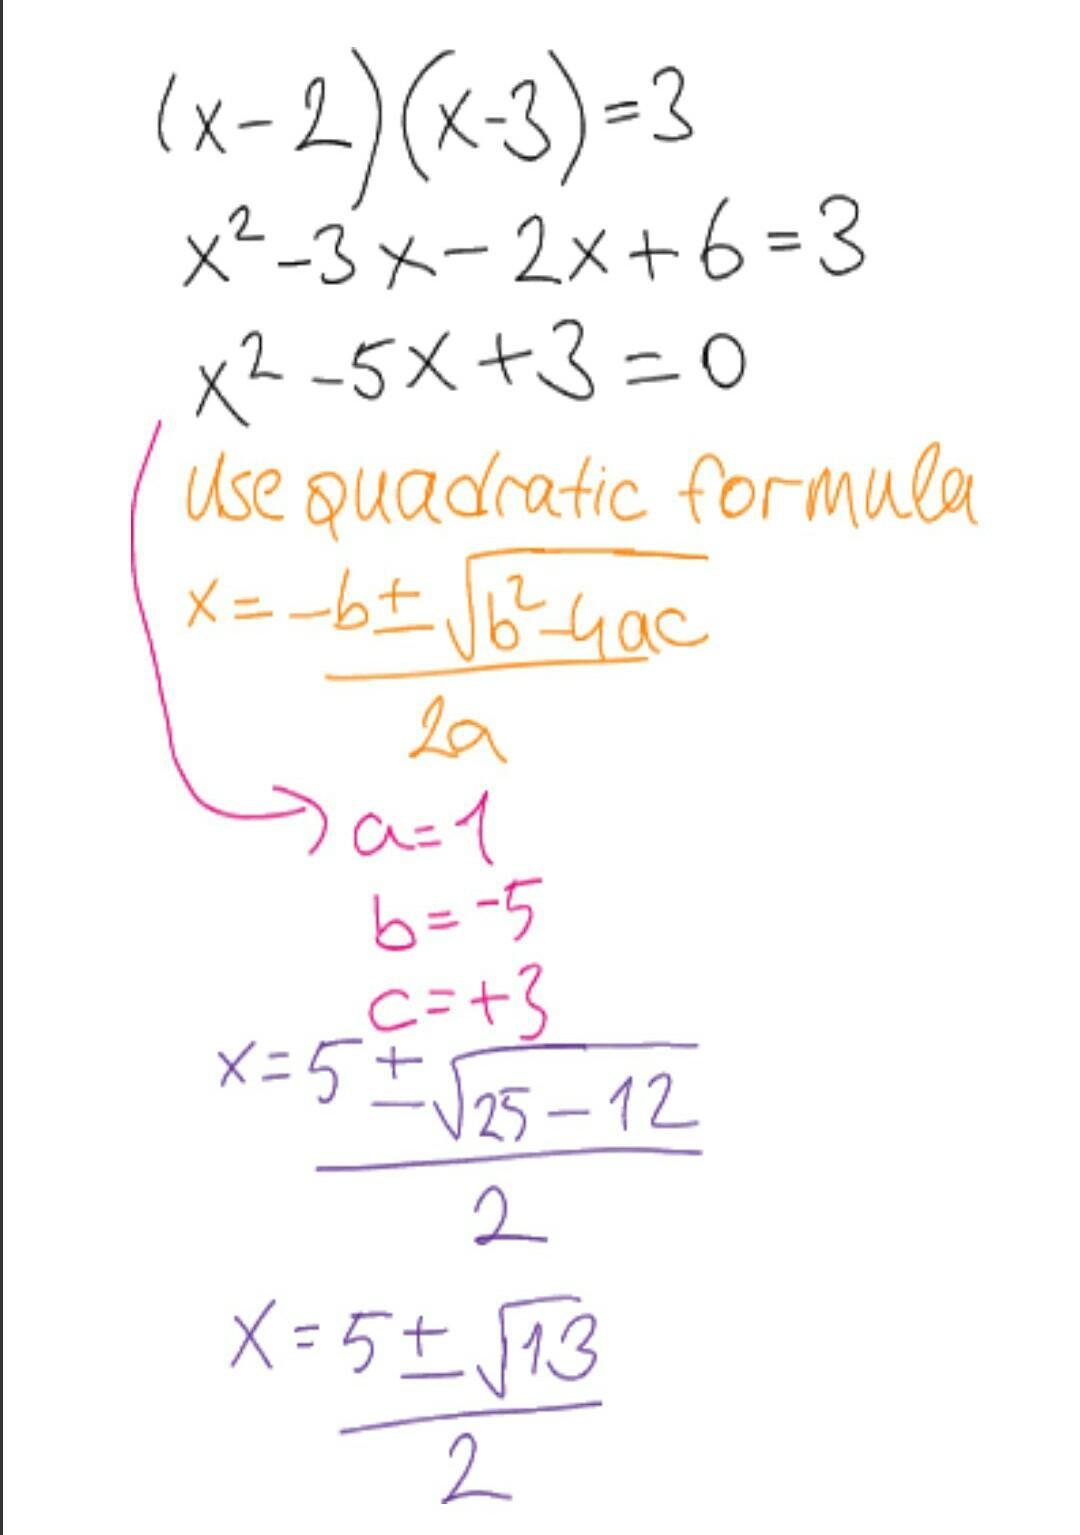 (x-2)(x-3)=3
x²-3x-2x+6=3
x²-5x+3=0
Use quadratic formula
x=-b±√b²-4ac
2a
a=1
b=-5
c=+3
x=5±√25-12
2
x=5±√13
2